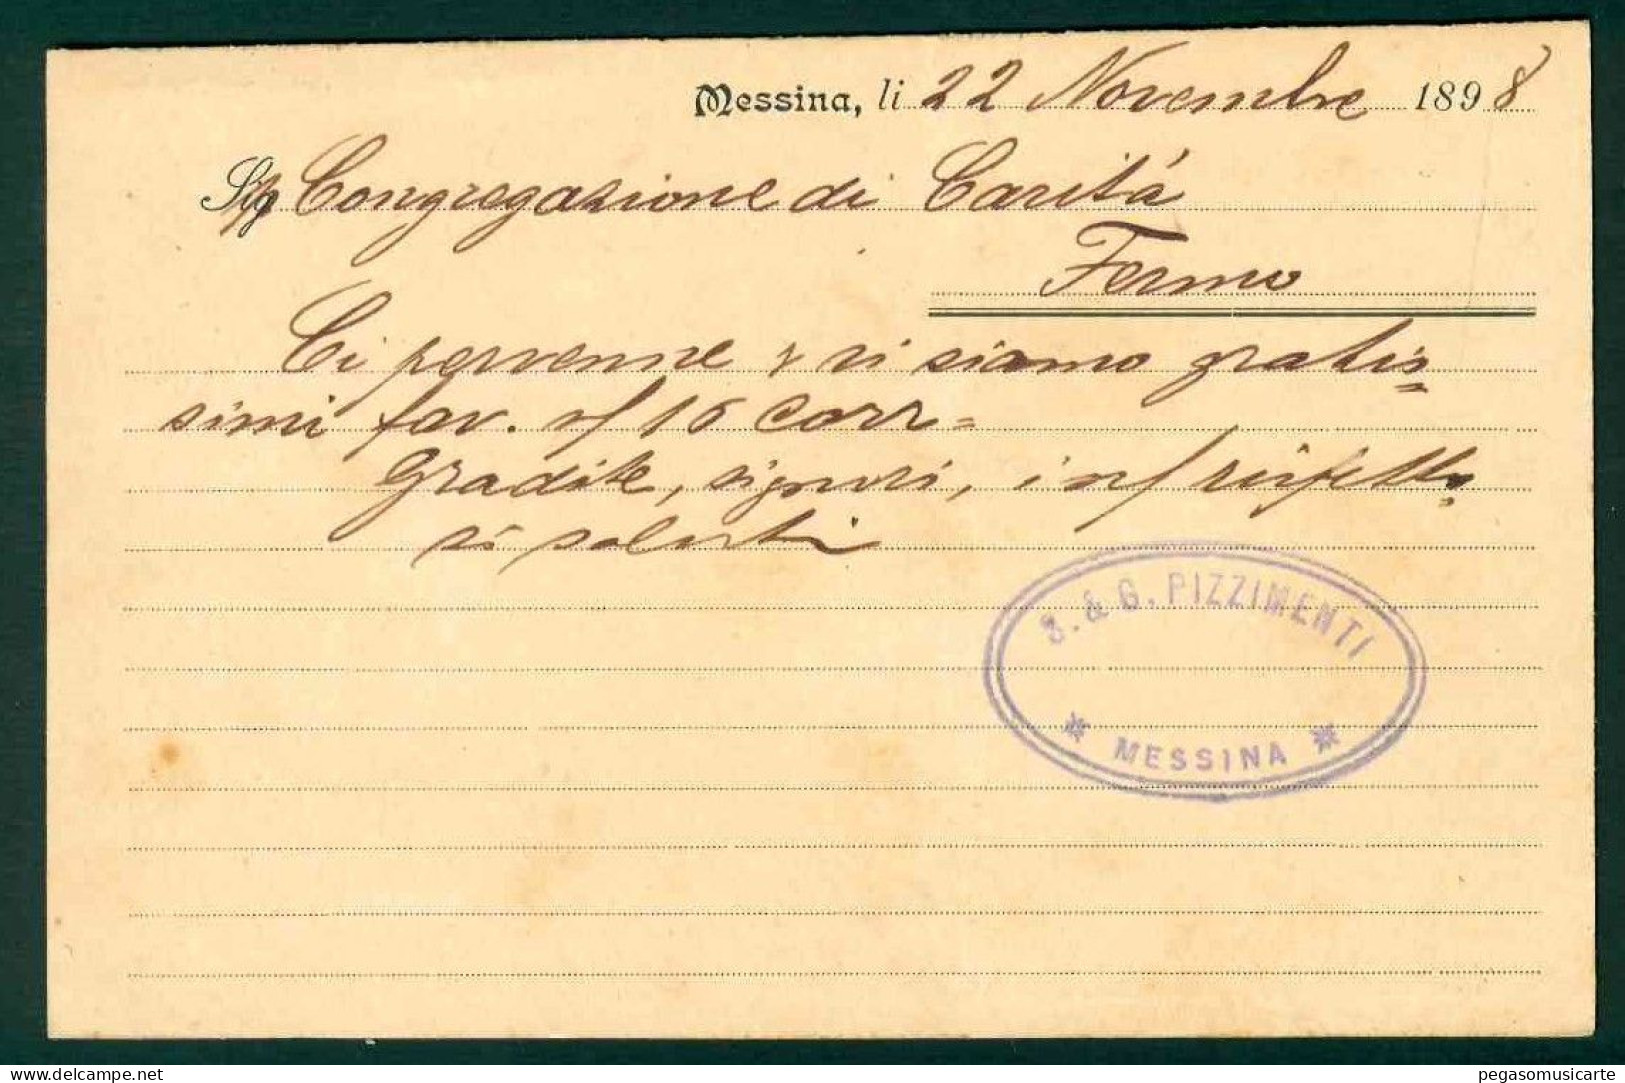 Messina, li 22 Novembre 1898
Congregazione di Carità
Fermo
Ci pervenne e vi siamo gratis=
simi fav. v/ 16 corr=
Gradite, signori, i ns/ rispetto=
si saluti
S. & G. PIZZIMENTI
* MESSINA *
pegasomusicarte